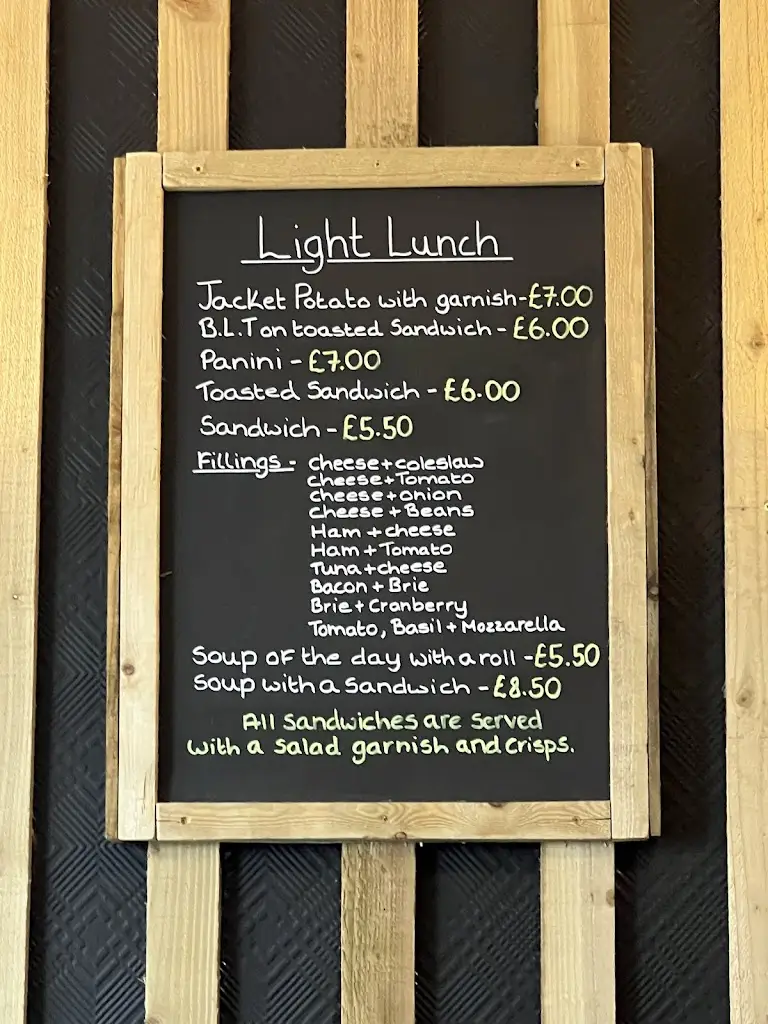 Light Lunch
Jacket Potato with garnish - £7.00
B.L.T on toasted Sandwich - £6.00
Panini - £7.00
Toasted Sandwich - £6.00
Sandwich - £5.50
Fillings - cheese + coleslaw
cheese + Tomato
cheese + onion
cheese + Beans
Ham + cheese
Ham + Tomato
Tuna + cheese
Bacon + Brie
Brie + Cranberry
Tomato, Basil + Mozzarella
Soup of the day with a roll - £5.50
Soup with a Sandwich - £8.50
All sandwiches are served
with a salad garnish and crisps.